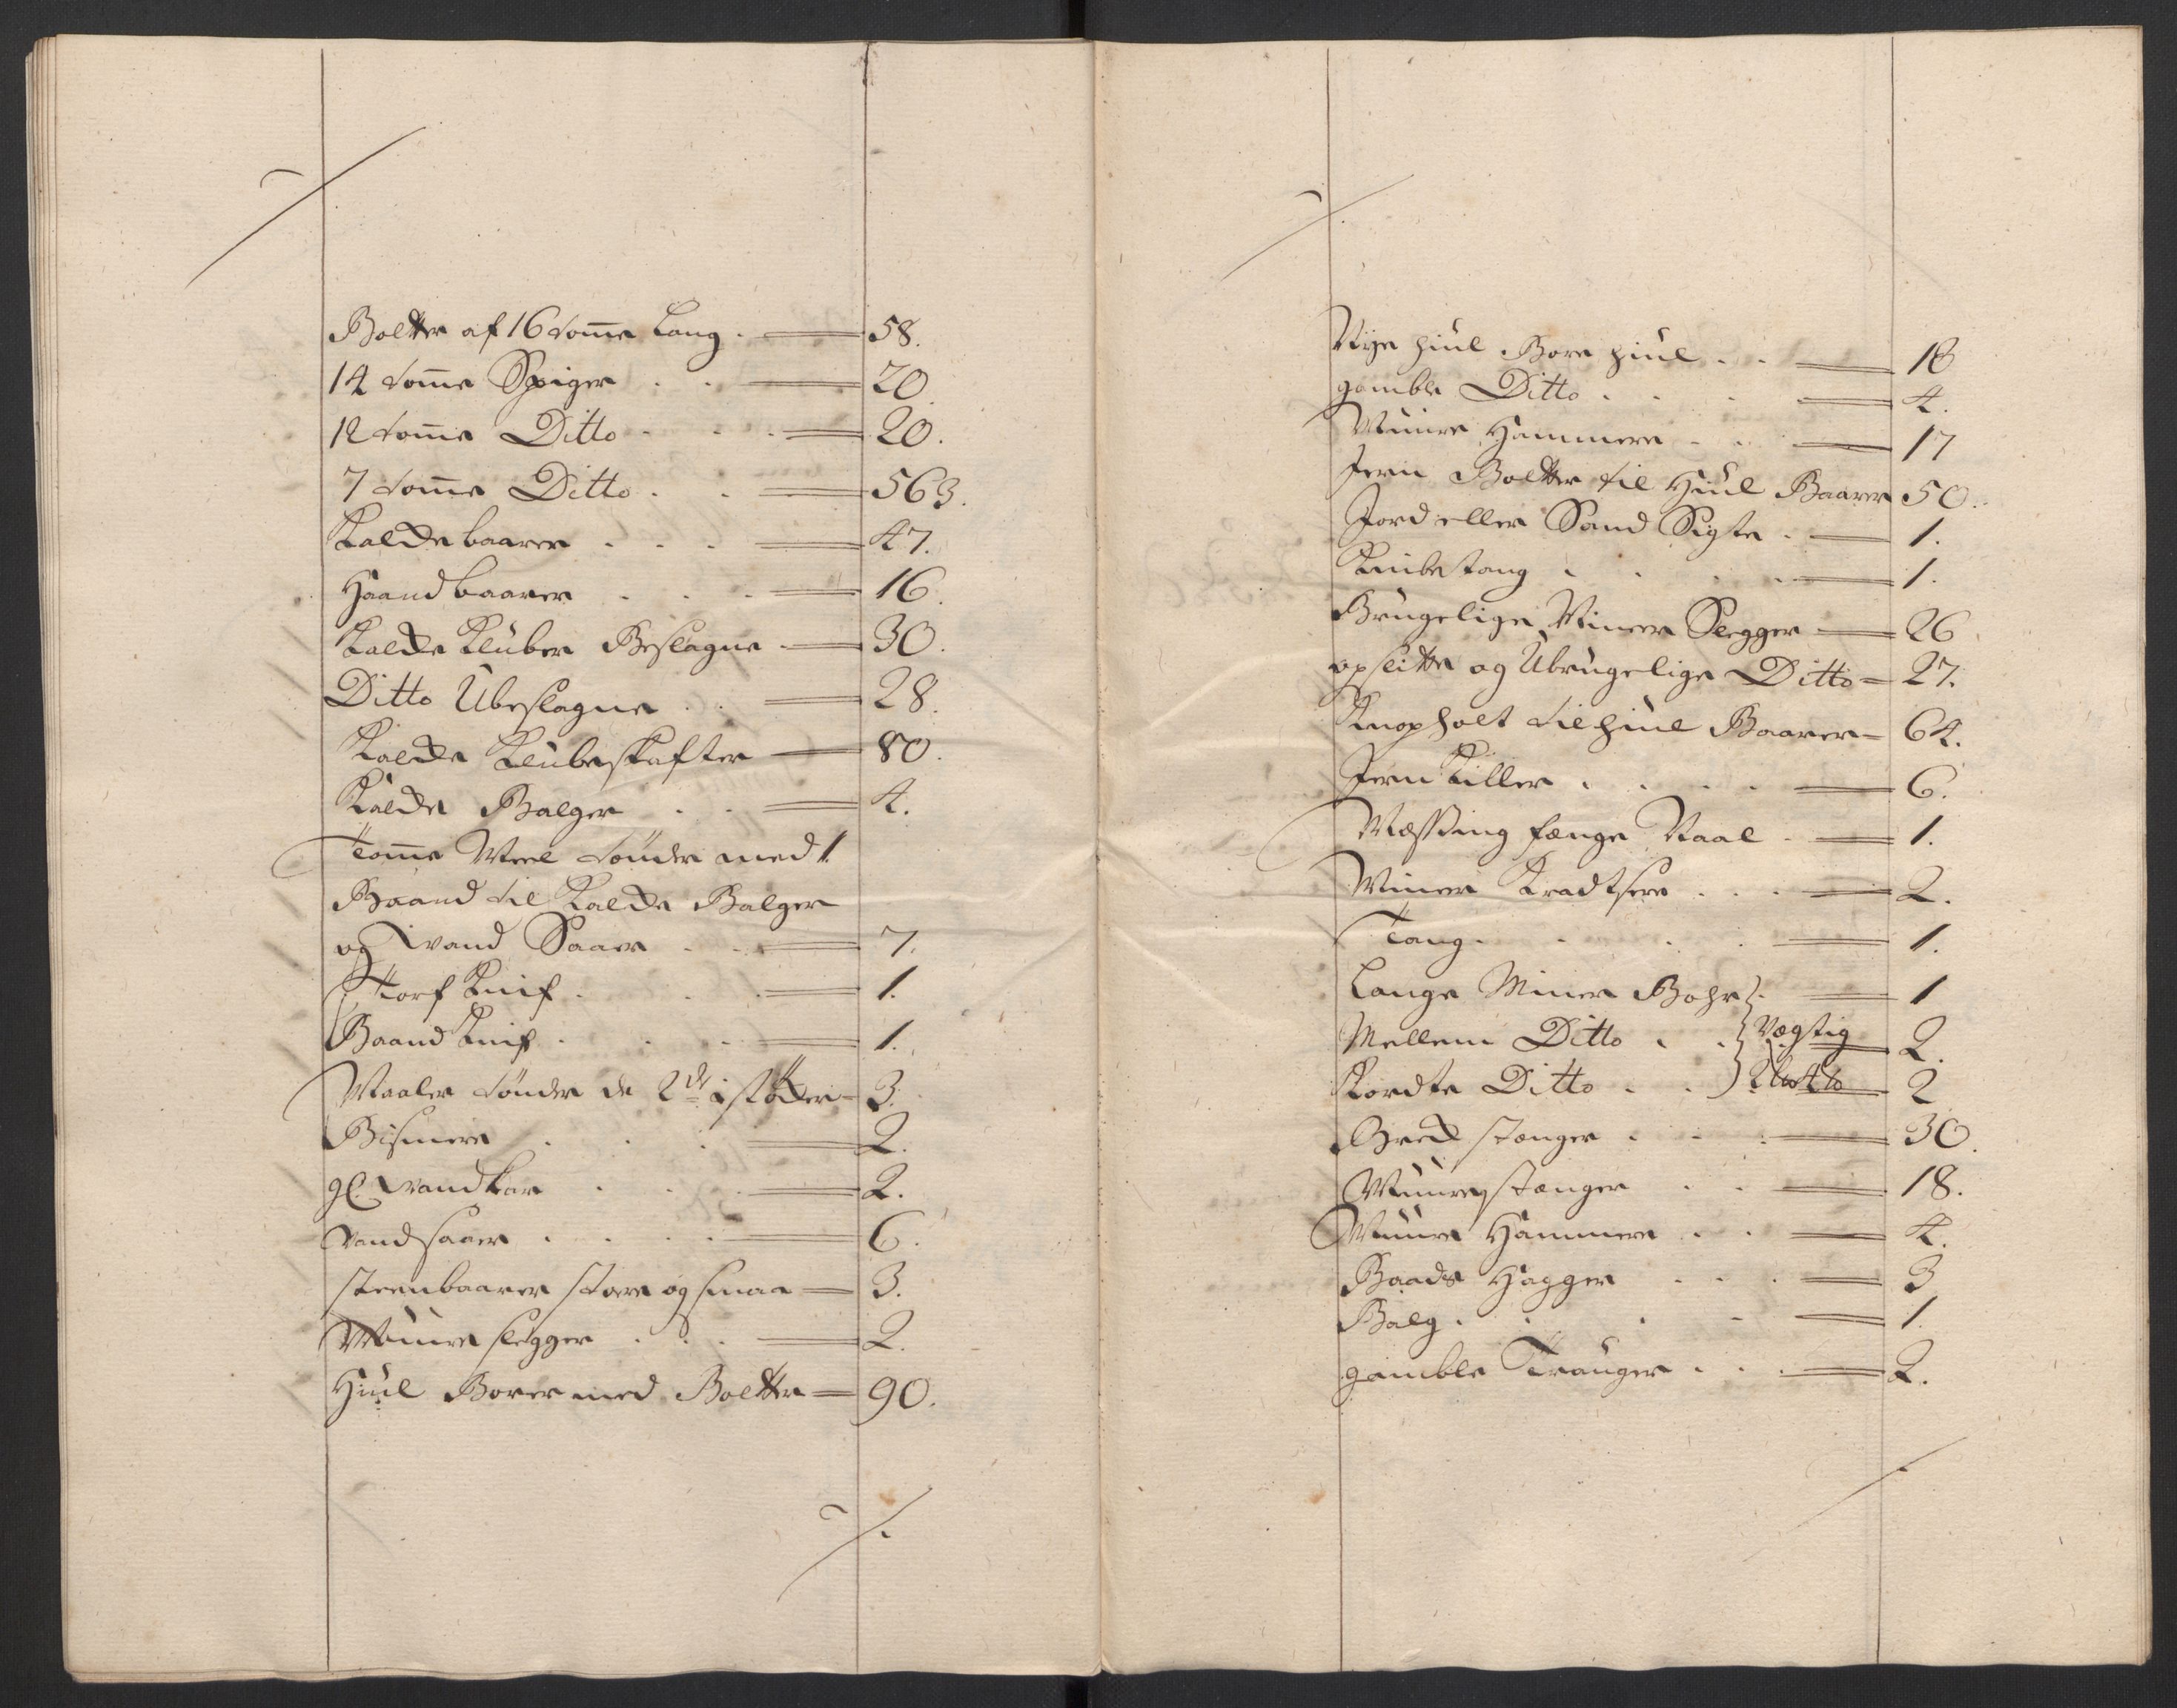 Boltter af 16 tom̄e Lang . 58.
14 tom̄e Spiger . . 20.
12 tom̄e Ditto . . . 20.
7 tom̄e Ditto . . 563.
Kalckebaarer . . . 47.
Haandbaarer . . . 16.
Kalcke Klüber Beslagne . 30.
Ditto Übeslagne . . 28.
Kalcke Klübeskafter 80.
Kalcke Balger . . 4.
Tom̄e Meel tønder med 1
Baand til Kalcke Balger
og Vand Saaer . . 7.
Torf Knif . . . 1.
Baand Knif . . . 1.
Maaler tønder de 2de istøcker 3.
Bismere . . . 2.
gl. Vandkar . . . 2.
Vandsaaer . . . . 6.
Steenbaarer store og smaa 3.
Muure slegger . . . 2.
Hiul Borer med Boltter 90.
Nye hiul Bore hiul . . 18
gamble Ditto . . . 4.
Muure Hammere . . 17
Jern Boltter til Hiul Baarer 50.
Jord eller Sand Sigte . 1.
Knibetang . . . . 1.
Brugelige Mineer Slegger 26
opslitte og Ubrugelige Ditto 27.
Knopholt til hiul Baarer 64.
Jern Killer . . . . 6.
Messing fænge Naal . 1.
Miner Kradtsere . . . 2.
Tang . . . . 1.
Lange Miner Bohr . 1
Mellem Ditto . . Vegtig 2.
Kordte Ditto . . 2
Bræk stænger . . . 30.
Muure stænger . . 18.
Muure Hammere . . 4.
Baads Hagger . . . 3
Balg . . . . 1.
gamble Trauger . . . 2.